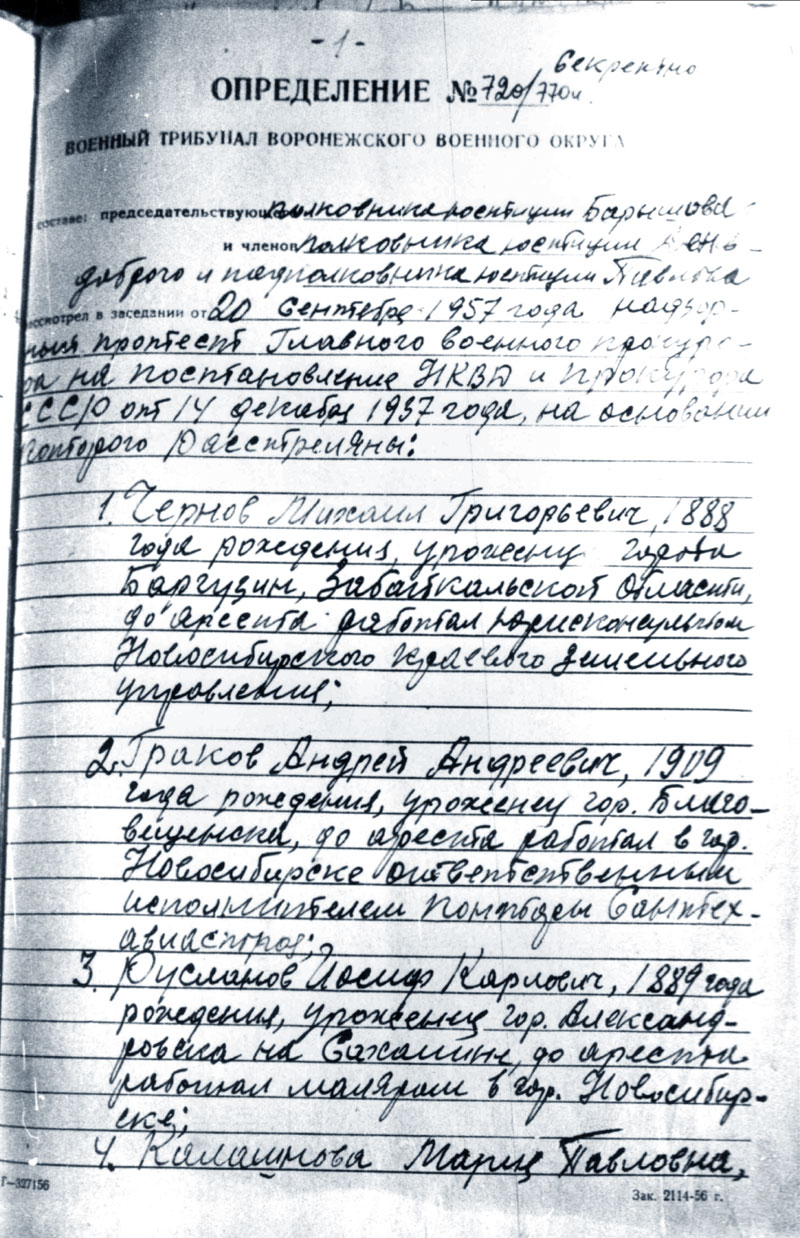 -1-
Секретно
ОПРЕДЕЛЕНИЕ №720/770и.
ВОЕННЫЙ ТРИБУНАЛ ВОРОНЕЖСКОГО ВОЕННОГО ОКРУГА
составе: председательствующего полковника юстиции Барышова
и членов полковника юстиции
доброго и подполковника юстиции Павлова
рассмотрел в заседании от 20 Сентября 1957 года надзор-
ный протест Главного военного прокуро-
ра на постановление НКВД и Прокурора
СССР от 14 декабря 1937 года, на основании
которого расстреляны:
1. Чернов Михаил Григорьевич, 1888
года рождения, уроженец города
Баргузин, Забайкальской области,
до ареста работал юрисконсультом
Новосибирского краевого земельного
управления;
2. Граков Андрей Андреевич, 1909
года рождения, уроженец гор. Благо-
вещенска, до ареста работал в гор.
Новосибирске ответственным
исполнителем конторы Сантех-
авиастроя;
3. Русланов Иосиф Карлович, 1889 года
рождения, уроженец гор. Александ-
ровска на Сахалине, до ареста
работал маляром в гор. Новосибир-
ске;
4. Калашнова Мария Павловна,
Г-327156
Зак. 2114-56 г.